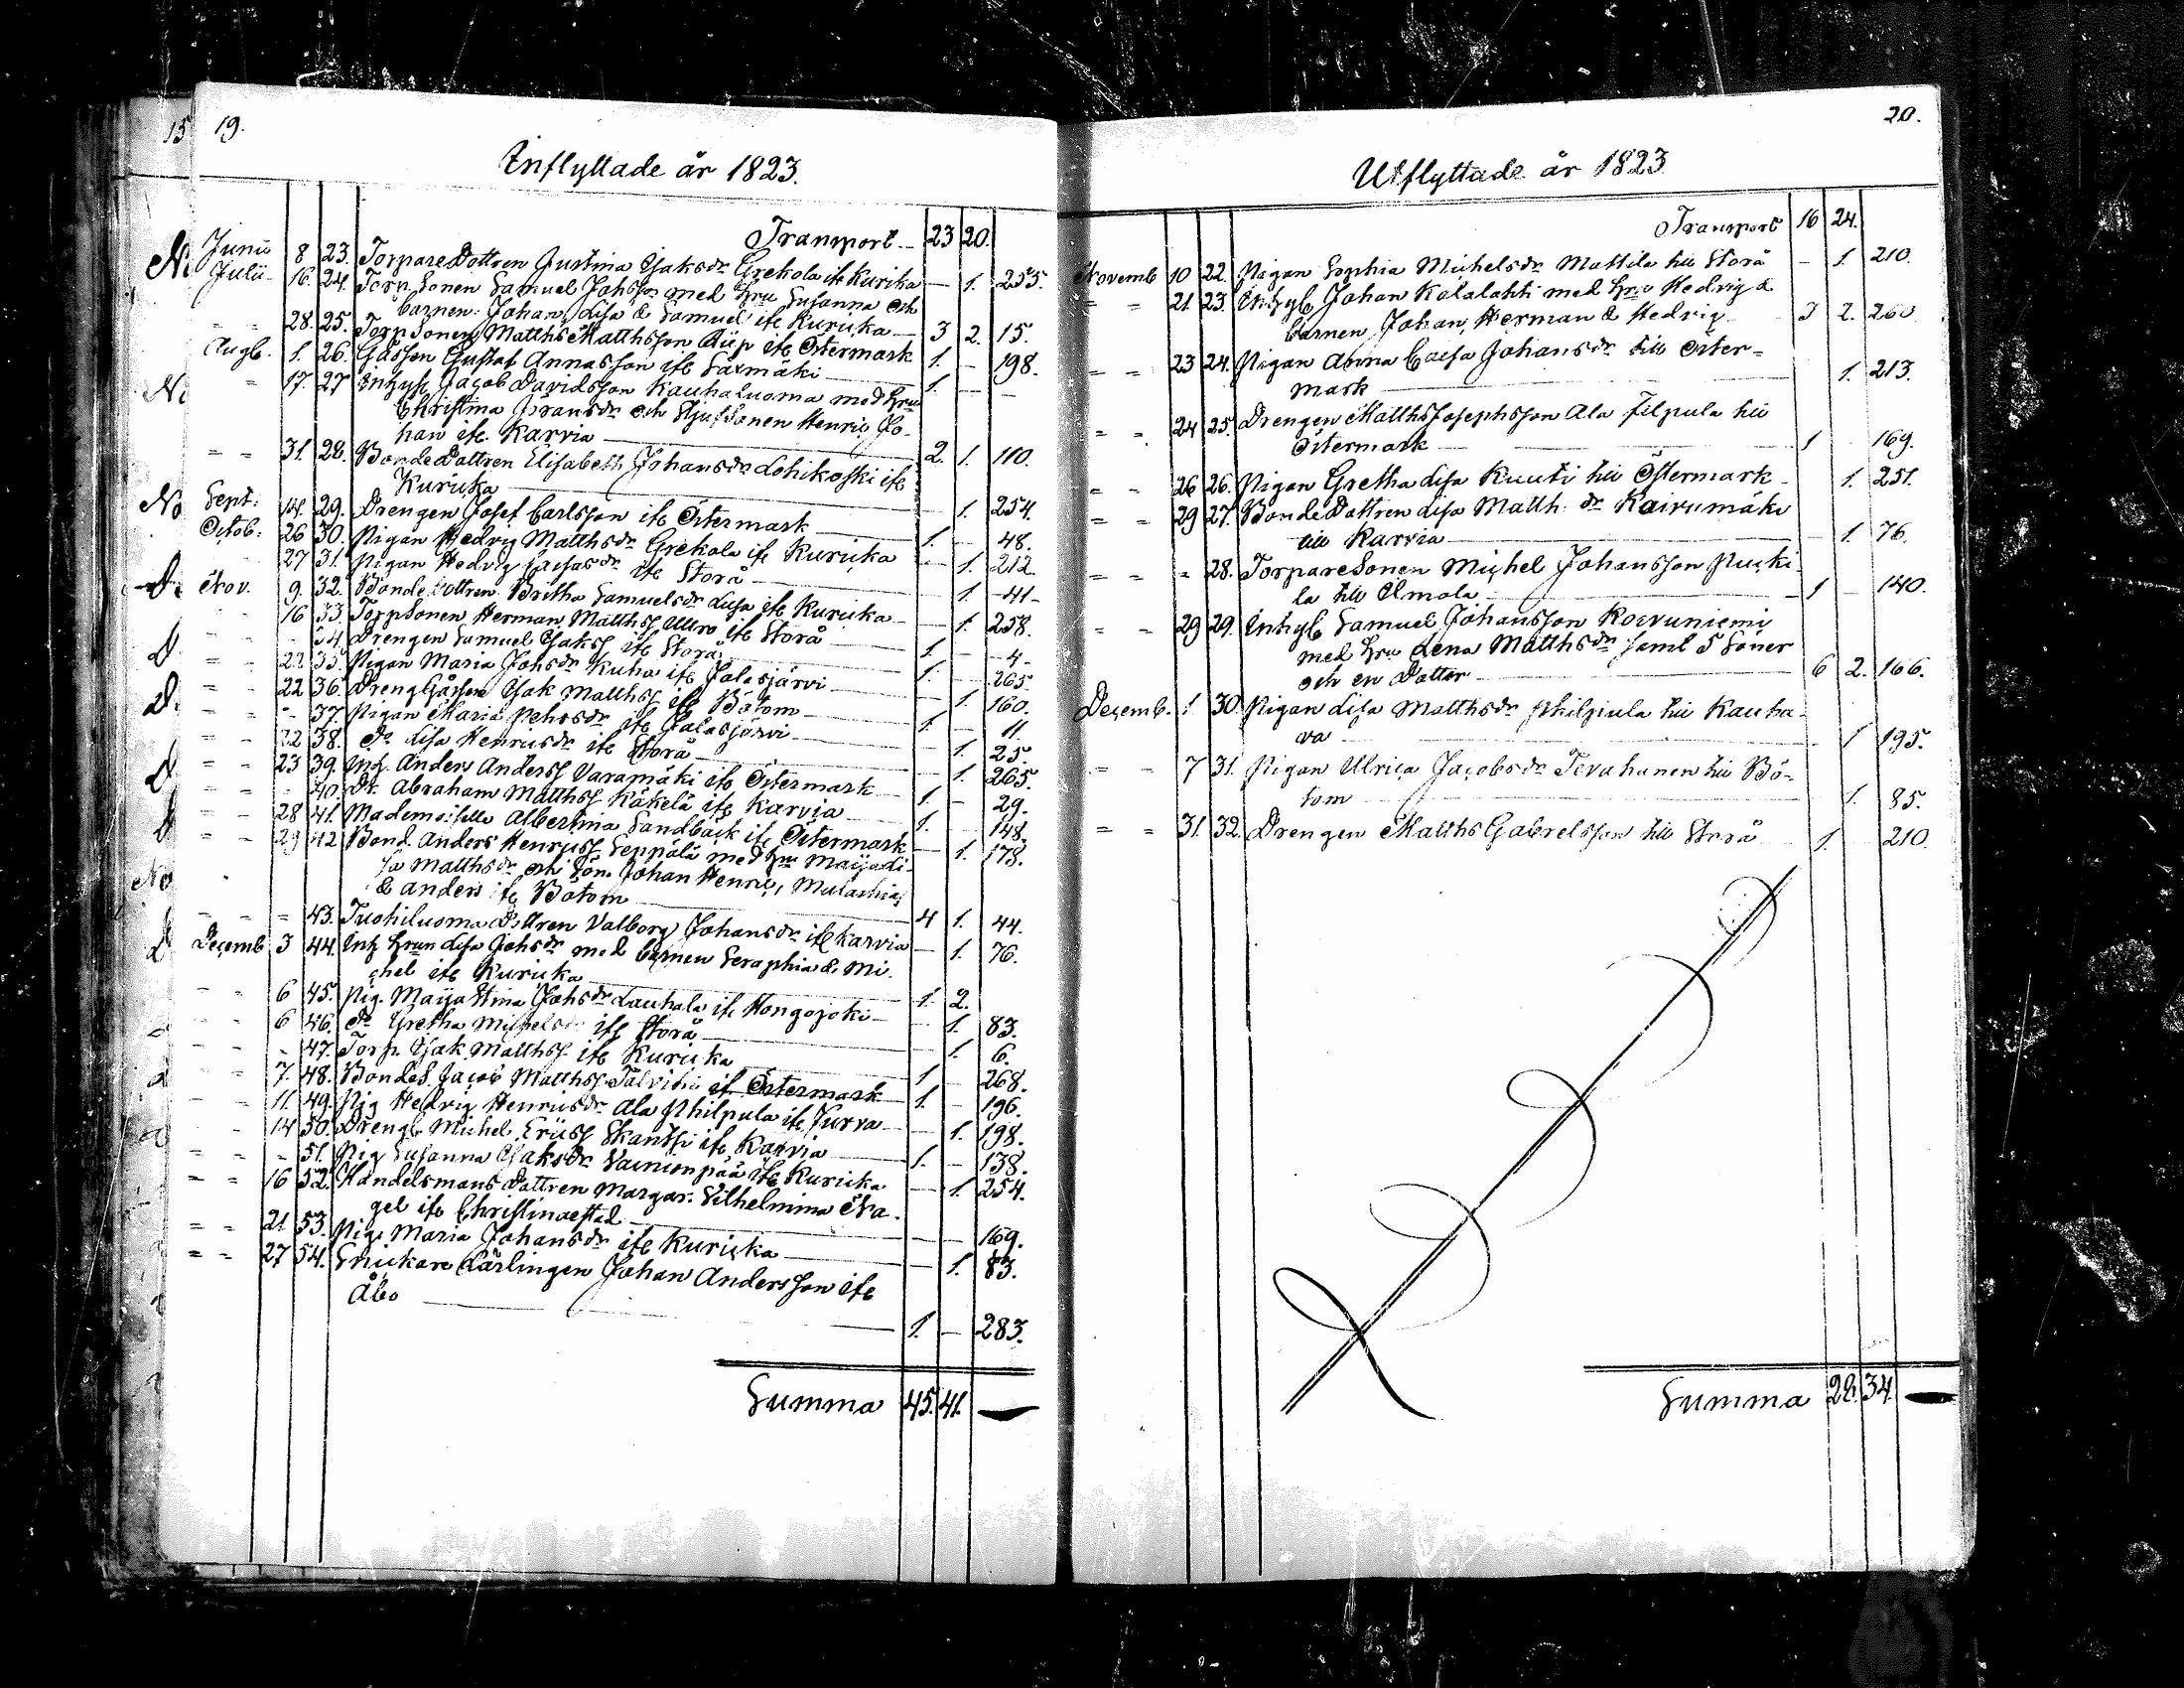 15 19.
Inflyttade år 1823.
Transport 23 20.
Junii 8 23. TorpareDottren Justina Isaksdr Grekola ifr Kurika — 1. 255.
Julii 16. 24. Torp. Sonen Samuel Johsson med hru Susanna och
barnen: Johan, Lisa & Samuel ifr Kuricka 3 2. 15.
28. 25. TorpSonen Matths Matthsson ifr Östermark 1. — 198.
Aug. 1. 26. Gåssen Gustaf Annasson ifr Sarmäki 1. —
17. 27 Inhys Jacob Davidsson Kauhaluoma med hru
Christina Jöransdr och StjufSonen Henric Jo-
han ifr. Karvia 2. 1. 110.
31. 28. BondeDottren Elisabeth Johansdr Lohikoski ifr
Kuricka — 1. 254.
Sept: 14. 29. Drengen Josef Carlsson ifr Östermark 1. — 48.
Octob: 26 30. Pigan Hedvig Matthsdr Grekola ifr Kuricka — 1. 212
27 31. Pigan Hedvig ifr Storå — 1. 41
Nov. 9. 32. BondeDottren Britha Samuelsdr Luja ifr Kuricka — 1. 258.
16 33. TorpSonen Herman Matthss ifr Storå 1. — 4
34 Drengen Samuel Isakss ifr Storå 1. — 265.
22 35. Pigan Maria Johsdr Kuha ifr Jalasjärvi — 1. 160.
22 36. DrengGåssen Isak Matthss ifr Bötom 1. — 11.
37. Pigan Maria Pehrsdr ifr Jalasjärvi — 1. 25.
22 38. Do Lisa Henricsdr ifr Storå — 1. 265.
23 39. Inh. Anders Anderss Varamäki ifr Östermark 1. — 29.
40. Dr. Abraham Matthss Käkelä ifr Karvia 1. 148.
28 41. Mademoiselle Albertina Sandbäck ifr Östermark — 1. 178.
29 42 Bond. Anders Henricss Seppälä med hru Maija Li-
sa Matthsdr och Sön. Johan Henric, Malachias
& Anders ifr Bötom 4 1. 44.
43. Tuohiluoma Dottren Valborg Johansdr ifr Karvia — 1. 76.
Decemb 3 44. Inh hrun Lisa Johsdr med barnen Seraphia & Mi-
chel ifr Kuricka 1. 2.
6 45. Pig. Maija Stina Johsdr Lauhala ifr Hongojoki — 1. 83.
6 46. Do Gretha Michelsdr ifr Storå — 1. 6.
47. Torp. Isak Matthss ifr Kuricka 1 — 268.
7. 48. BondeS. Jacob Matthss Talvitie ifr Östermark 1. — 196.
11. 49. Pig Hedvig Henricsdr Ala Philpula ifr Jurva — 1. 198.
14 50. Dreng. Michel Ericss Skantsi ifr Karvia 1. — 138.
51. Pig Susanna Isaksdr Vainionpää ifr Kuricka — 1. 254.
16 52. Handelsmans Dottren Margar. Vilhelmina Na-
gel ifr Christinaestad — — 169.
21 53. Pig. Maria Johansdr ifr Kuricka — 1. 83.
27 54. Snickare Lärlingen Johan Andersson ifr
Åbo 1. — 283.
Summa 45. 41.
20.
Utflyttade år 1823
Transport 16 24.
Novemb 10 22. Pigan Sophia Michelsdr Mattila till Storå — 1. 210.
21 23. Inhys Johan Kalalahti med hru Hedvig &
barnen Johan, Herman & Hedvig 3 2. 260
23 24. Pigan Anna Caisa Johansdr till Öster-
mark 1. 213.
24 25. Drengen Matths Josephsson Ala Filpula till
Östermark 1 169.
26 26. Pigan Gretha Lisa Kuuti till Östermark 1. 251.
29 27. BondeDottren Lisa Matth. dr Kairumäki
till Karvia 1. 76.
28. TorpareSonen Michel Johansson Pucki-
la till Ilmola 1 — 140.
29 29. Inhys Samuel Johansson Koivuniemi
med hru Lena Matthsdr samt 5 Söner
och en Dotter 6 2. 166.
Decemb. 1 30. Pigan Lisa Matthsdr Philpula till Kauha-
va 1 195.
7 31. Pigan Ulrica Jacobsdr Tervahanen till Bö-
tom 1. 85.
31. 32. Drengen Matths Gabrelsson till Storå 1. 210.
Summa 28. 34